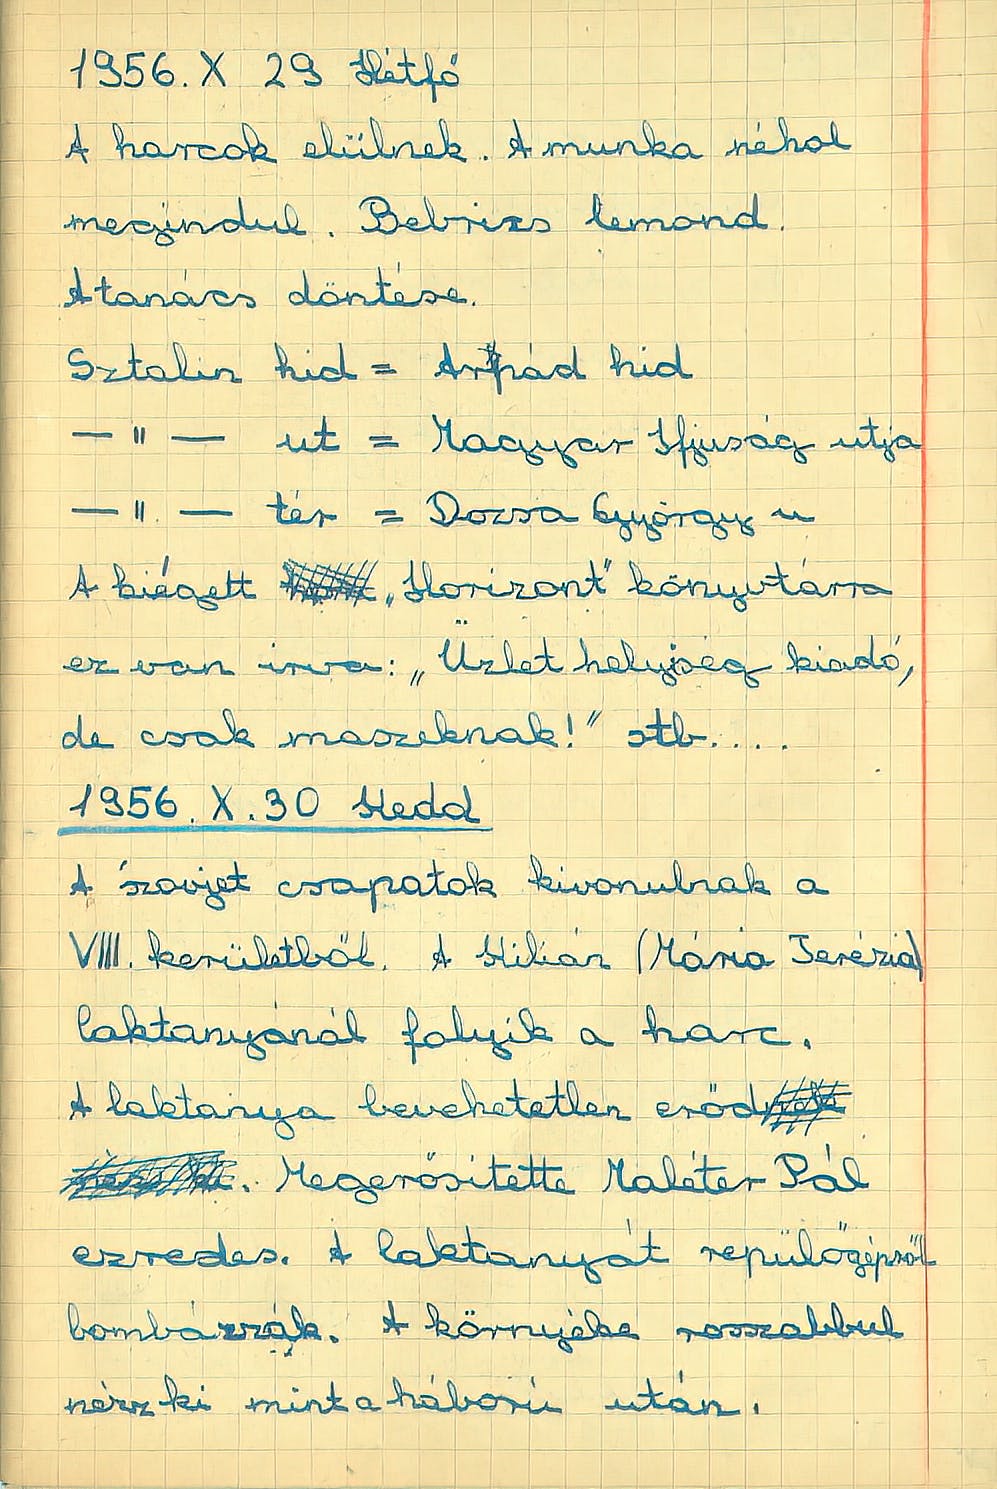 1956. X 29 Hétfő
A harcok elülnek. A munka néhol
megindul. Bebrizs lemond.
A tanács döntése.
Sztalin hid = Arpád hid
— " — ut = Magyar Ifjuság utja
— " — tér = Dozsa György u
A kiégett „Horizont" könyvtárra
ez van irva: „Üzlet helyiség kiadó,
de csak maszeknak!" stb....
1956. X. 30 Kedd
A szovjet csapatok kivonulnak a
VIII. kerületből. A Kilián (Mária Terézia)
laktanyánál folyik a harc.
A laktanya bevehetetlen erőd
. Megerősitette Maléter Pál
ezredes. A laktanyát repülőgépről
bombázzák. A környéke rosszabbul
néz ki mint a háború után.